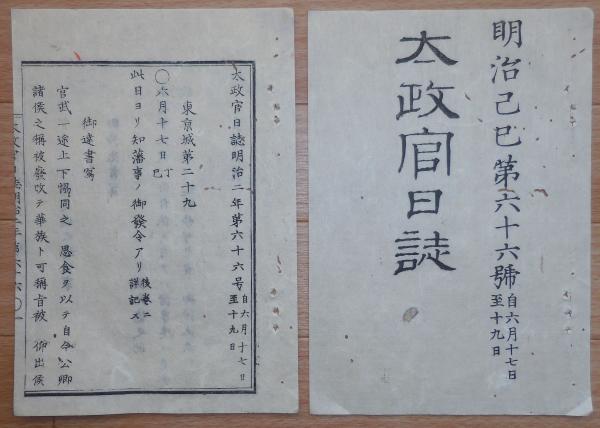 明治己巳第六十六號自六月十七日至十九日
太政官日誌
太政官日誌明治二年第六十六号自六月十七日至十九日
東京城第二十九
〇六月十七日丁巳
此日ヨリ知藩事ノ御發令アリ後卷ニ詳記ス
御達書寫
官武一途上下協同之 思食ヲ以テ自今公卿
諸侯之稱被廢改テ華族ト可稱旨被 仰出候